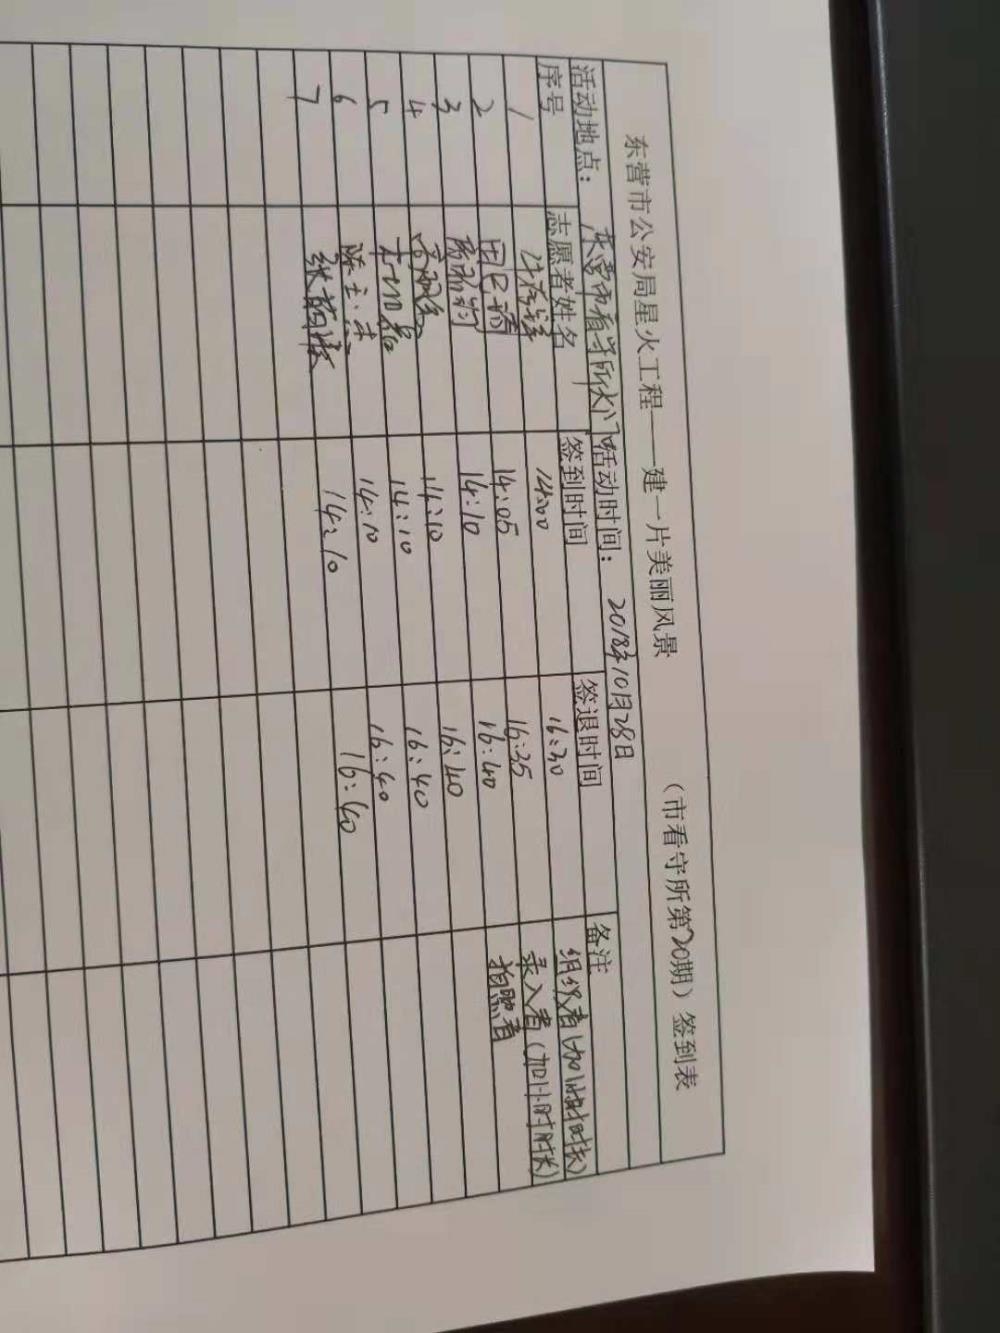 东营市公安局星火工程——建一片美丽风景 （市看守所第20期）签到表
活动地点： 东营市看守所大门 活动时间： 2018年10月28日
序号 志愿者姓名 签到时间 签退时间 备注
1 14:00 16:30 组织者（加1小时时长）
2 14:05 16:35 录入者（加1小时时长）
3 14:10 16:40 拍照者
4 14:10 16:40
5 14:10 16:40
6 14:10 16:40
7 14:10 16:40